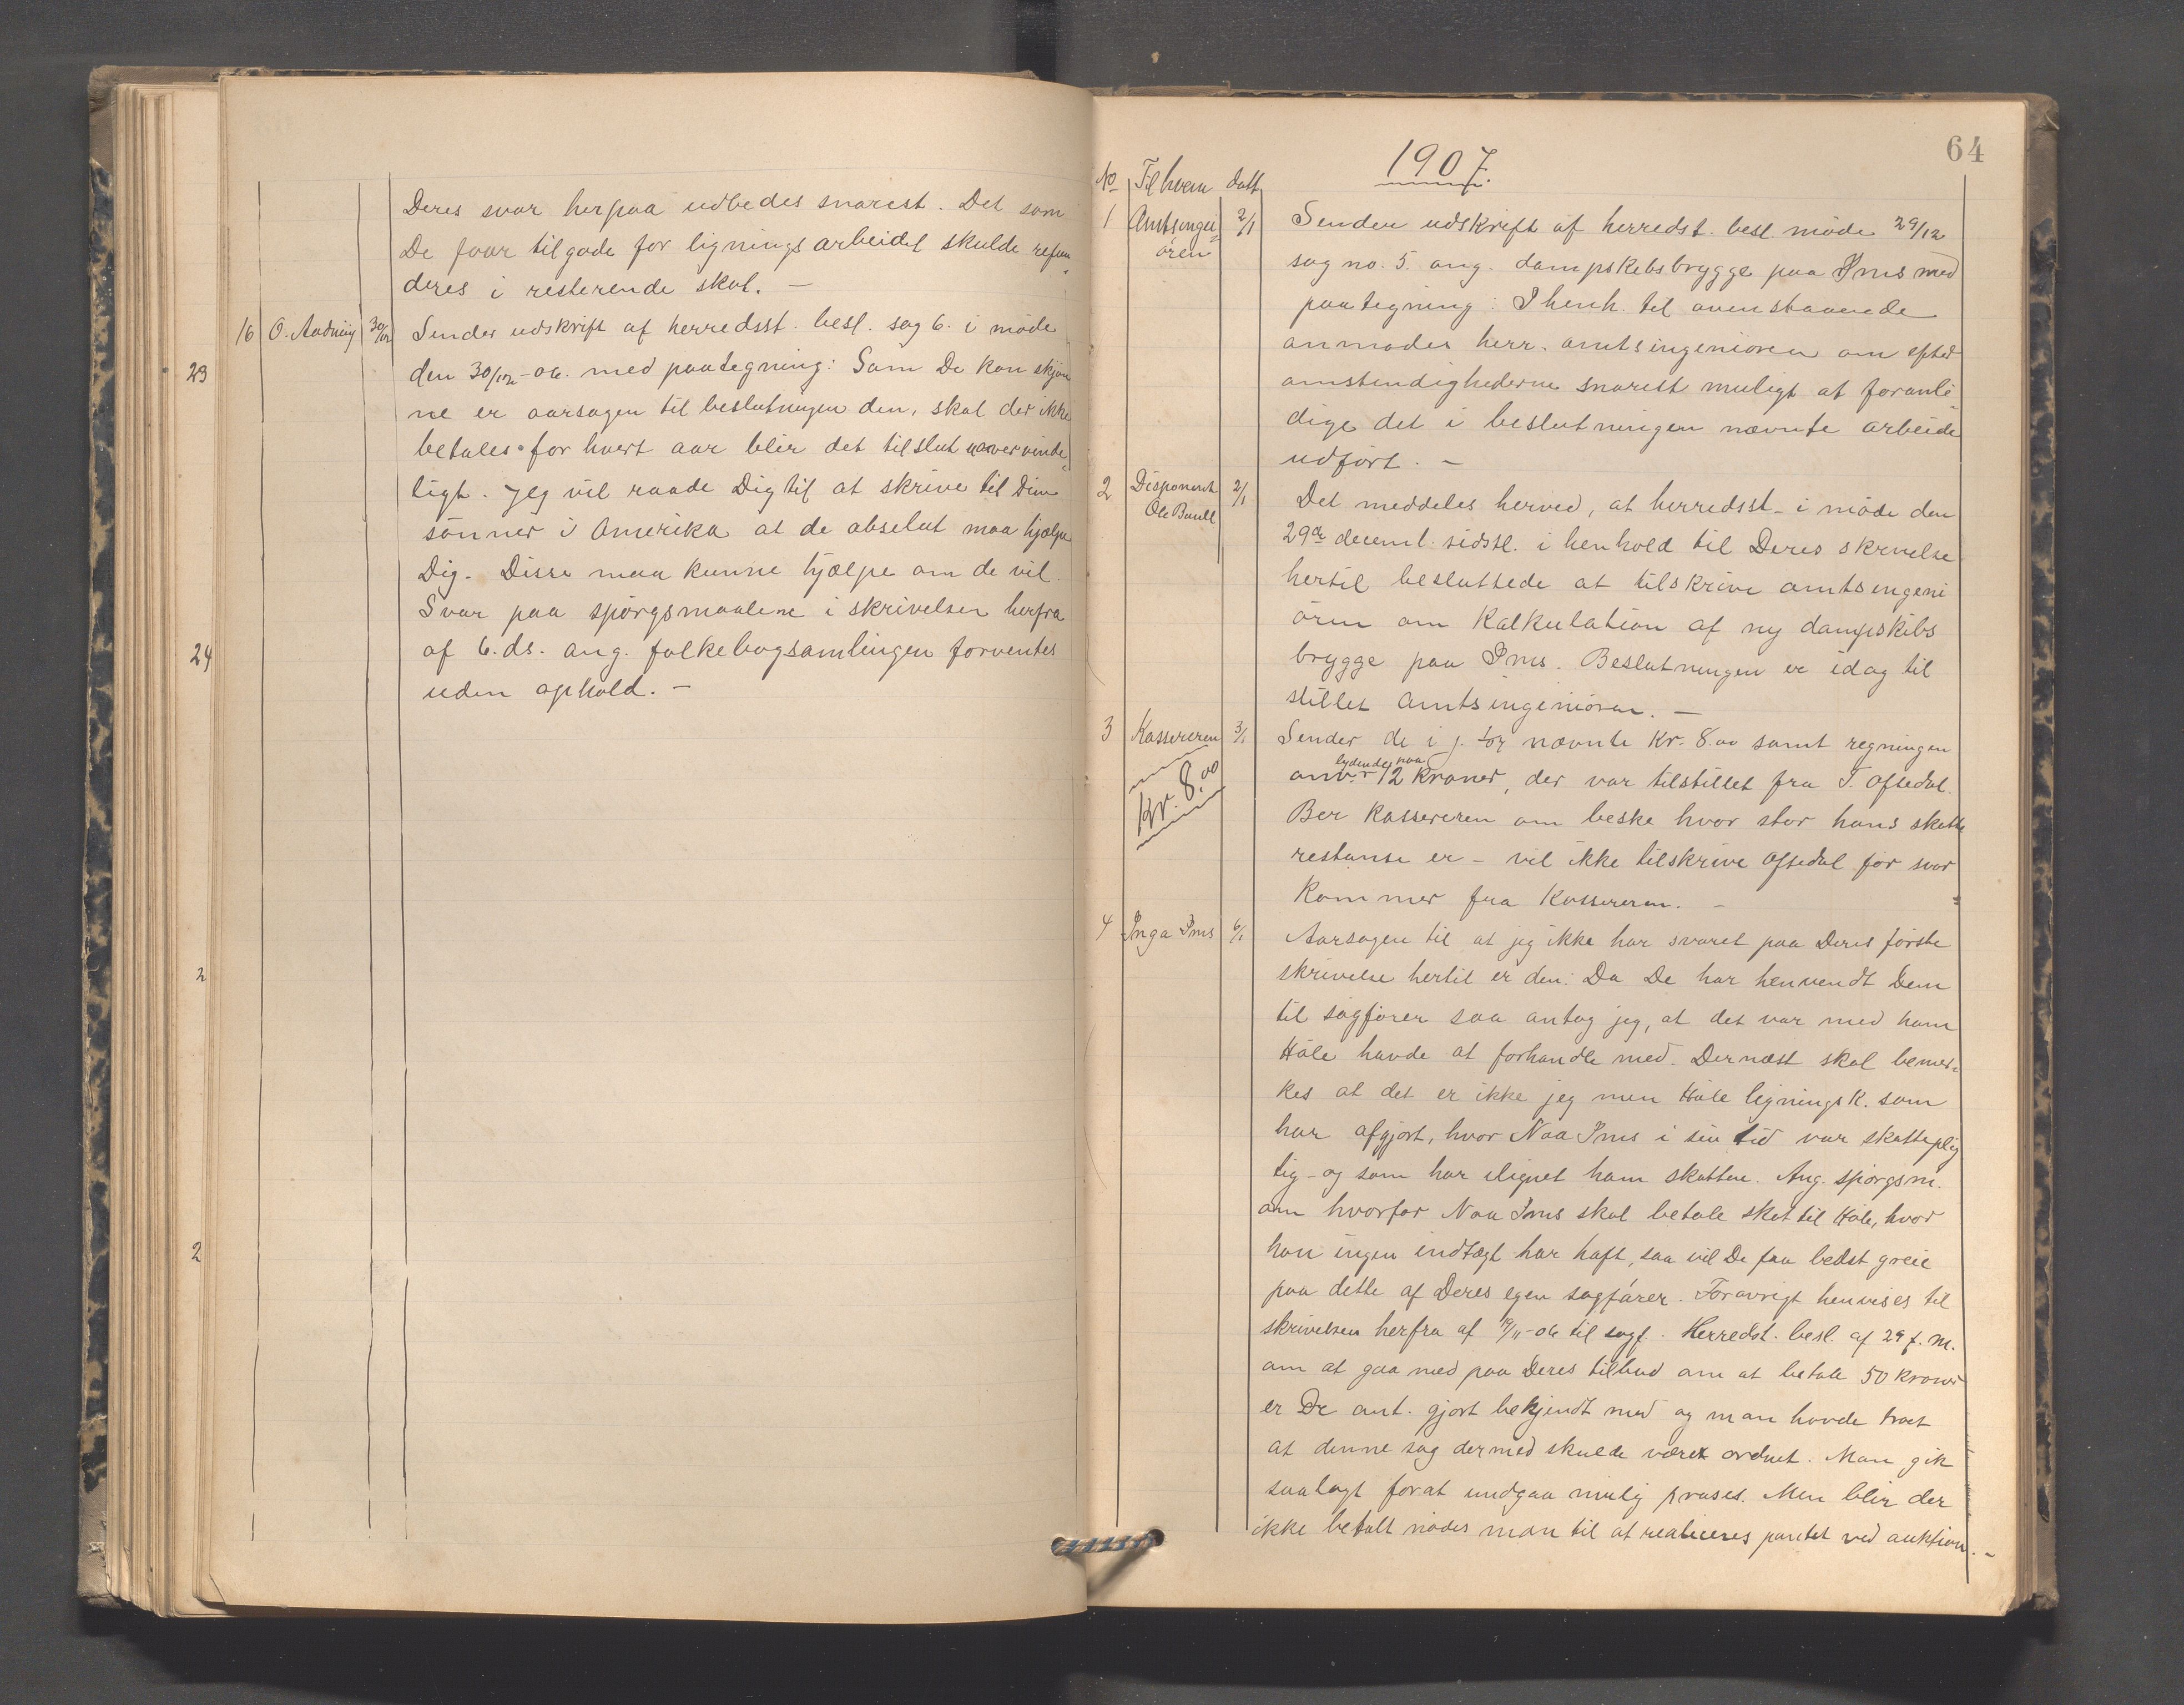 Deres svar herpaa udbedes snarest. Det som
De faar tilgode for ligningsarbeidet skulde refun
deres i resterende skat. —
16 O. Aadnøy 30/12 Sender udskrift af herredsst. besl. sag 6. i møde
den 30/12-06. med paategning: Som De kan skjøn
ne er aarsagen til beslutningen den, skal der ikke
betales for hvert aar blir det tilslut uoververvinde
ligt. Jeg vil raade Dig til at skrive til Dine
sønner i Amerika at de absolut maa hjælpe
Dig. Disse maa kunne hjælpe om de vil.
Svar paa spørgsmaalene i skrivelsen herfra
af 6. ds. ang. folkebogsamlingen forventes
uden ophold. —
23
24
2
2
64
1907.
No Til hvem dato
1 Amtsingeni
øren 2/1
Sender udskrift af herredst. besl. møde 29/12
sag no. 5. ang. dampskibsbrygge paa Ims med
paategning: I henh. til ovenstaaende
anmodes herr. amtsingeniøren om efter
omstendighederne snarest muligt at foranle
dige det i beslutningen nævnte arbeide
udført. —
2 Disponent
Ole Bull 2/1
Det meddeles herved, at herredsst. i møde den
29de decemb. sidstl. i henhold til Deres skrivelse
hertil besluttede at tilskrive amtsingeni
øren om Kalkulation af ny dampskibs
brygge paa Ims. Beslutningen er idag til
stillet Amtsingeniøren. —
3 Kassereren 3/1
Kr. 8.00
Sender de i j. nævnte Kr. 8.00 samt regningen
lydende paa
anv. 12 kroner, der var tilstillet fra T. Oftedal.
Ber Kassereren om beske hvor stor hans skatte
restanse er – vil ikke tilskrive Oftedal før svar
kommer fra Kassereren. —
4 Inga Ims 6/1
Aarsagen til at jeg ikke har svaret paa Deres første
skrivelse hertil er den: Da De har henvendt Dem
til sagfører saa antog jeg, at det var med ham
Høle havde at forhandle med. Dernæst skal bemer-
kes at det er ikke jeg men Høle lignings K. som
har afgjort, hvor Naa Ims i sin tid var skatteplig
tig – og som har ilignet ham skatten. Ang. spørgsm.
om hvorfor Naa Ims skal betale skat til Høle, hvor
han ingen indtægt har haft, saa vil De faa bedst greie
paa dette af Deres egen sagfører. Forøvrigt henvises til
skrivelsen herfra af 19/11-06 til sagf. Herredst. besl. af 29 f. m.
om at gaa med paa Deres tilbud om at betale 50 kroner
er De ant. gjort bekjendt med og man havde troet
at denne sag dermed skulde været ordnet. Man gik
saalagt forat undgaa mulig proses. Men blir der
ikke betalt nødes man til at realiceres pantet ved auktion. —